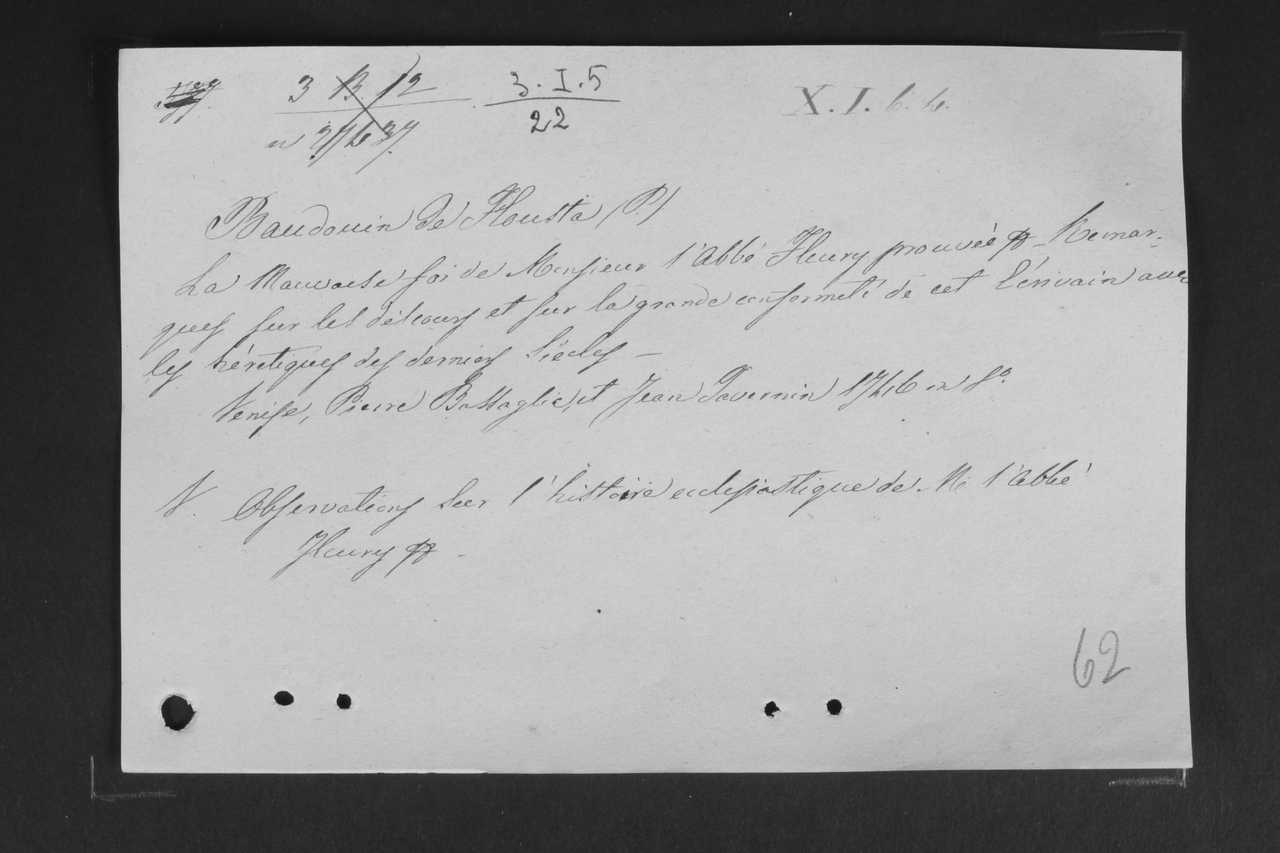 3 B 12 3.I.5 X.I.6.4.
22
Baudouin de Housta (P.)
La Mauvaise foi de Monsieur l'Abbé Fleury prouvée p Remar-
ques sur les discours et sur la grande conformité de cet Ecrivain avec
les hérétiques des derniers siècles —
Venise, Pierre Bassaglie, et Jean Tavernin 1746 in 8º
V. Observations sur l'histoire ecclesiastique de M l'Abbé
Fleury p —
62